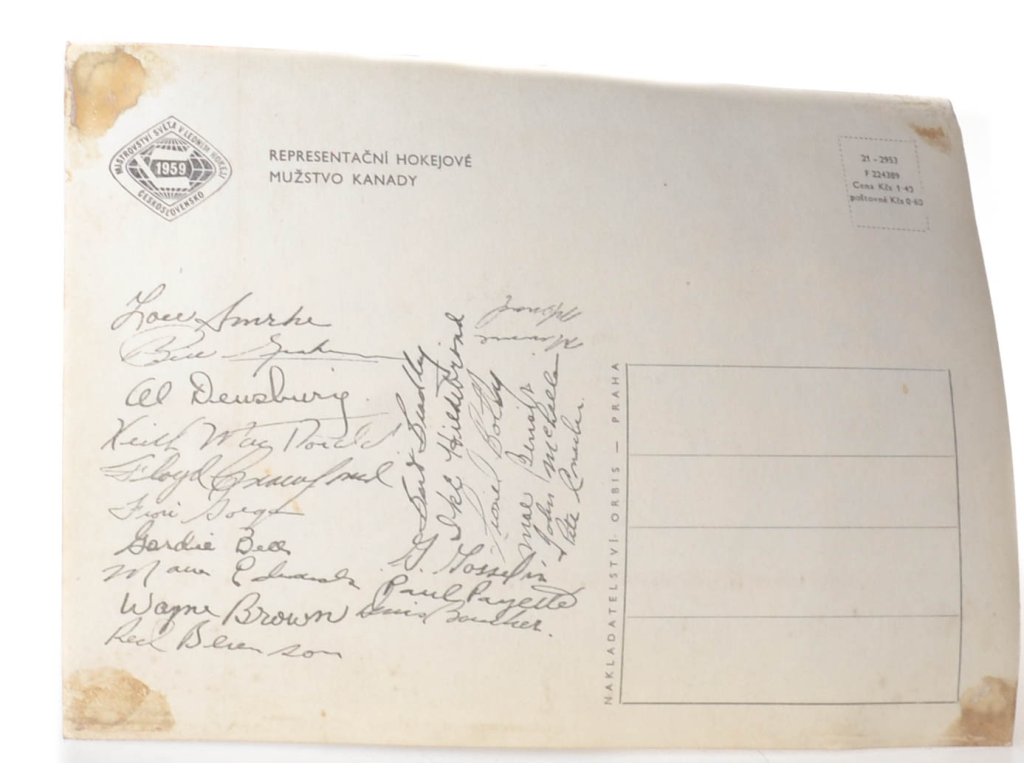 MISTROVSTVÍ SVĚTA V LEDNÍM HOKEJI
1959
ČESKOSLOVENSKO
REPRESENTAČNÍ HOKEJOVÉ
MUŽSTVO KANADY
21 - 2953
F 224389
Cena Kčs 1·40
poštovné Kčs 0·60
Smrke
Al Dewsbury
Keith MacDonald
Floyd Crawford
Fiori Goegan
Gordie Bell
Edwards
Wayne Brown
Red Berenson
Ike Hildebrand
Lionel Botly
Moe Benoit
John McKenzie
Pete Conacher
G. Gosselin
Paul Payette
Denis Boucher
NAKLADATELSTVÍ ORBIS — PRAHA